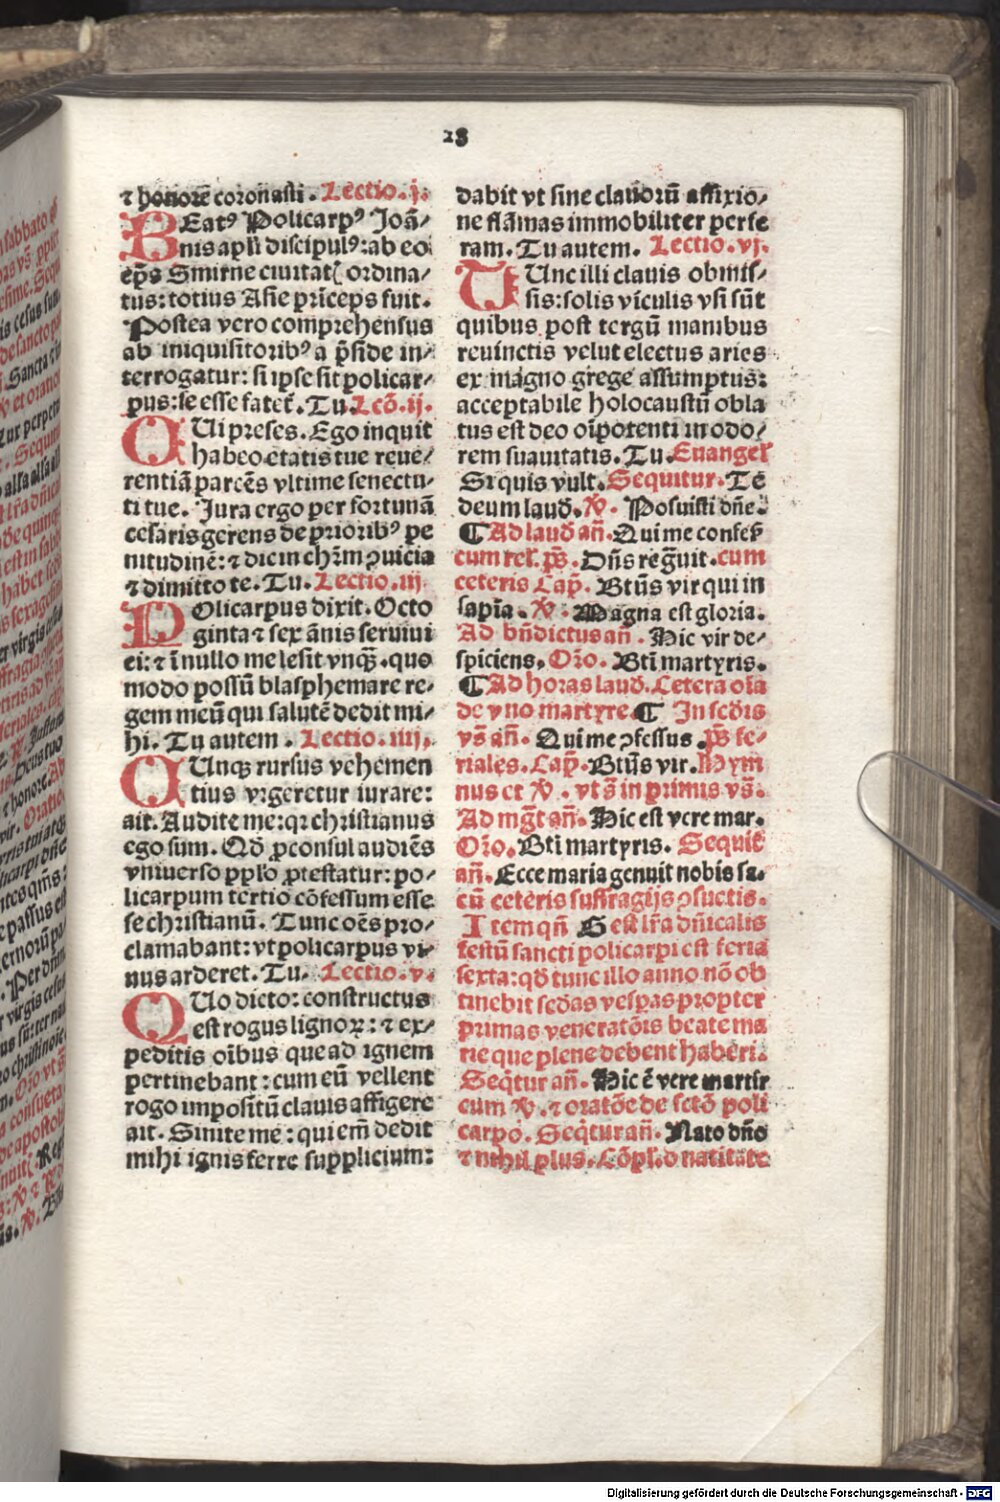 28
⁊ honorē coronasti. Lectio.j.
BEatꝰ Policarpꝰ Joā-
nis apl'i discipulꝰ: ab eo
ep̄s Smirne ciuitatꝭ ordina-
tus: totius Asie prīceps fuit.
Postea vero comprehensus
ab inquisitoribꝰ a p̄side in-
terrogatur: si ipse sit policar-
pus: se esse fatet̄. Tu. Lcō.ij.
QUi preses. Ego inquit
habeo etatis tue reue-
rentiā parcēs vltime senectu-
ti tue. Jura ergo per fortunā
cesaris gerens de prioribꝰ pe
nitudinē: ⁊ dic in chr̄m ꝯuicia
⁊ dimitto te. Tu. Lectio.iij.
POlicarpus dixit. Octo
ginta ⁊ sex ānis seruiui
ei: ⁊ ī nullo me lesit vnq̄. quo
modo possū blasphemare re-
gem meū qui salutē dedit mi-
hi. Tu autem. Lectio.iiij.
CUnqꝫ rursus vehemen
tius vrgeretur iurare:
ait. Audite me: qr christianus
ego sum. Qd̄ ꝓconsul audiēs
vniuerso pp̄lo ꝓtestatur: po-
licarpum tertio cōfessum esse
se christianū. Tunc oēs pro-
clamabant: vt policarpus vi-
uus arderet. Tu. Lectio.v.
QUo dicto: constructus
est rogus lignoꝝ: ⁊ ex-
peditis oībus que ad ignem
pertinebant: cum eū vellent
rogo impositū clauis affigere
ait. Sinite me: qui em̄ dedit
mihi ignis ferre supplicium:
dabit vt sine clauorū affixio-
ne flāmas immobiliter perfe
ram. Tu autem. Lectio.vj.
TUnc illi clauis obmis-
sis: solis vīculis vsi sūt
quibus post tergū manibus
reuinctis velut electus aries
ex magno grege assumptus:
acceptabile holocaustū obla
tus est deo oīpotenti in odo-
rem suauitatis. Tu. Euangel'
Si quis vult. Sequitur. Tē
deum laud̄. ℣. Posuisti dn̄e.
¶ Ad laud̄ an̄. Qui me confes̄
cum rel'. ps̄. Dn̄s regͣuit. cum
ceteris Cap̄. Btūs vir qui in
sapīa. ℣. Magna est gloria.
Ad bn̄dictus an̄. Hic vir de-
spiciens. Or̄o. Bti martyris.
¶ Ad horas laud̄. Cetera oīa
de vno martyre. ¶ In scd̄is
vs̄ an̄. Qui me ꝯfessus. ps̄ fe-
riales. Cap̄. Btūs vir. Hym
nus et ℣. vt s̄ in primis vs̄.
Ad mḡt an̄. Hic est vere mar.
Or̄o. Bti martyris. Sequit̄
an̄. Ecce maria genuit nobis sa.
cū ceteris suffragijs ꝯsuetis.
Item qn̄ G est lr̄a dn̄icalis
festū sancti policarpi est feria
sexta: qd̄ tunc illo anno nō ob
tinebit scd̄as vesp̄as propter
primas veneratōis beate ma
rie que plene debent haberi.
Seq̄tur an̄. Hic ē vere martir
cum ℣. ⁊ oratōe de sctō poli
carpo. Seq̄tur an̄. Nato dn̄o
⁊ nihil plus. Cōpl'. d natitate
Digitalisierung gefördert durch die Deutsche Forschungsgemeinschaft - DFG